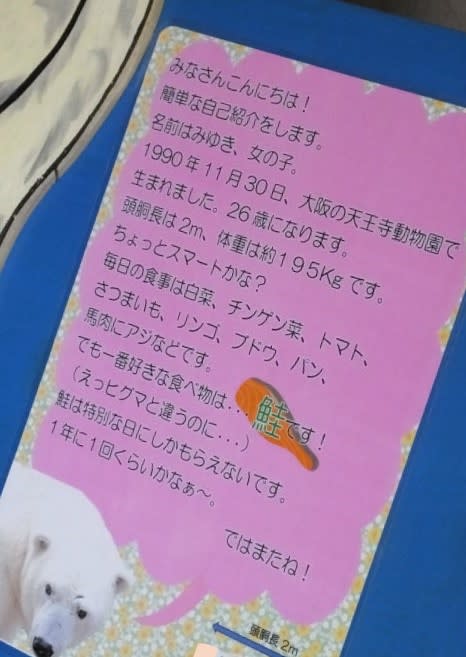 みなさんこんにちは！
簡単な自己紹介をします。
名前はみゆき、女の子。
1990年11月30日、大阪の天王寺動物園で
生まれました。26歳になります。
頭胴長は2m、体重は約195Kgです。
ちょっとスマートかな？
毎日の食事は白菜、チンゲン菜、トマト、
さつまいも、リンゴ、ブドウ、パン、
馬肉にアジなどです。
でも一番好きな食べ物は･･･鮭です！
（えっヒグマと違うのに･･･）
鮭は特別な日にしかもらえないです。
1年に1回くらいかなぁ～。
ではまたね！
頭胴長 2m